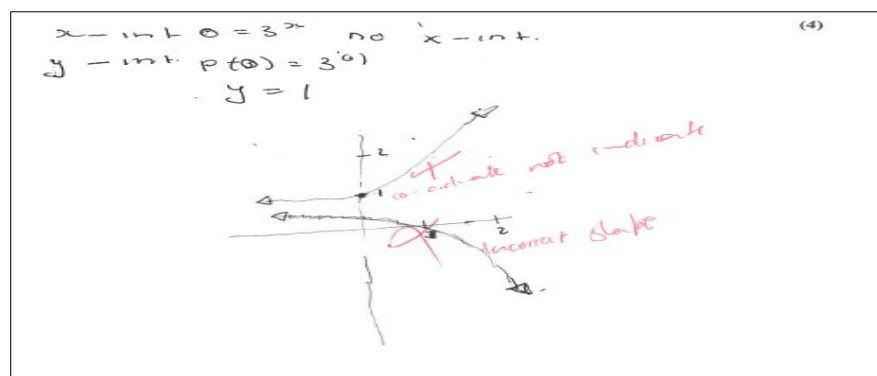 x-int 0 = 3^x no x-int.
(4)
y-int. p(0) = 3^(0)
y = 1
2
1
co-ordinate not indicate
1
2
incorrect shape